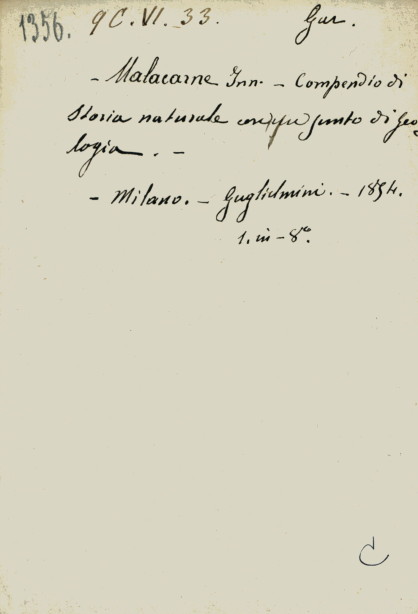 1356. 9C. VI. 33. Gar.
- Malacarne Inn. - Compendio di
Storia naturale con punto di Geo
logia. -
- Milano. - Guglielmini. - 1854.
1. in - 8º.
C